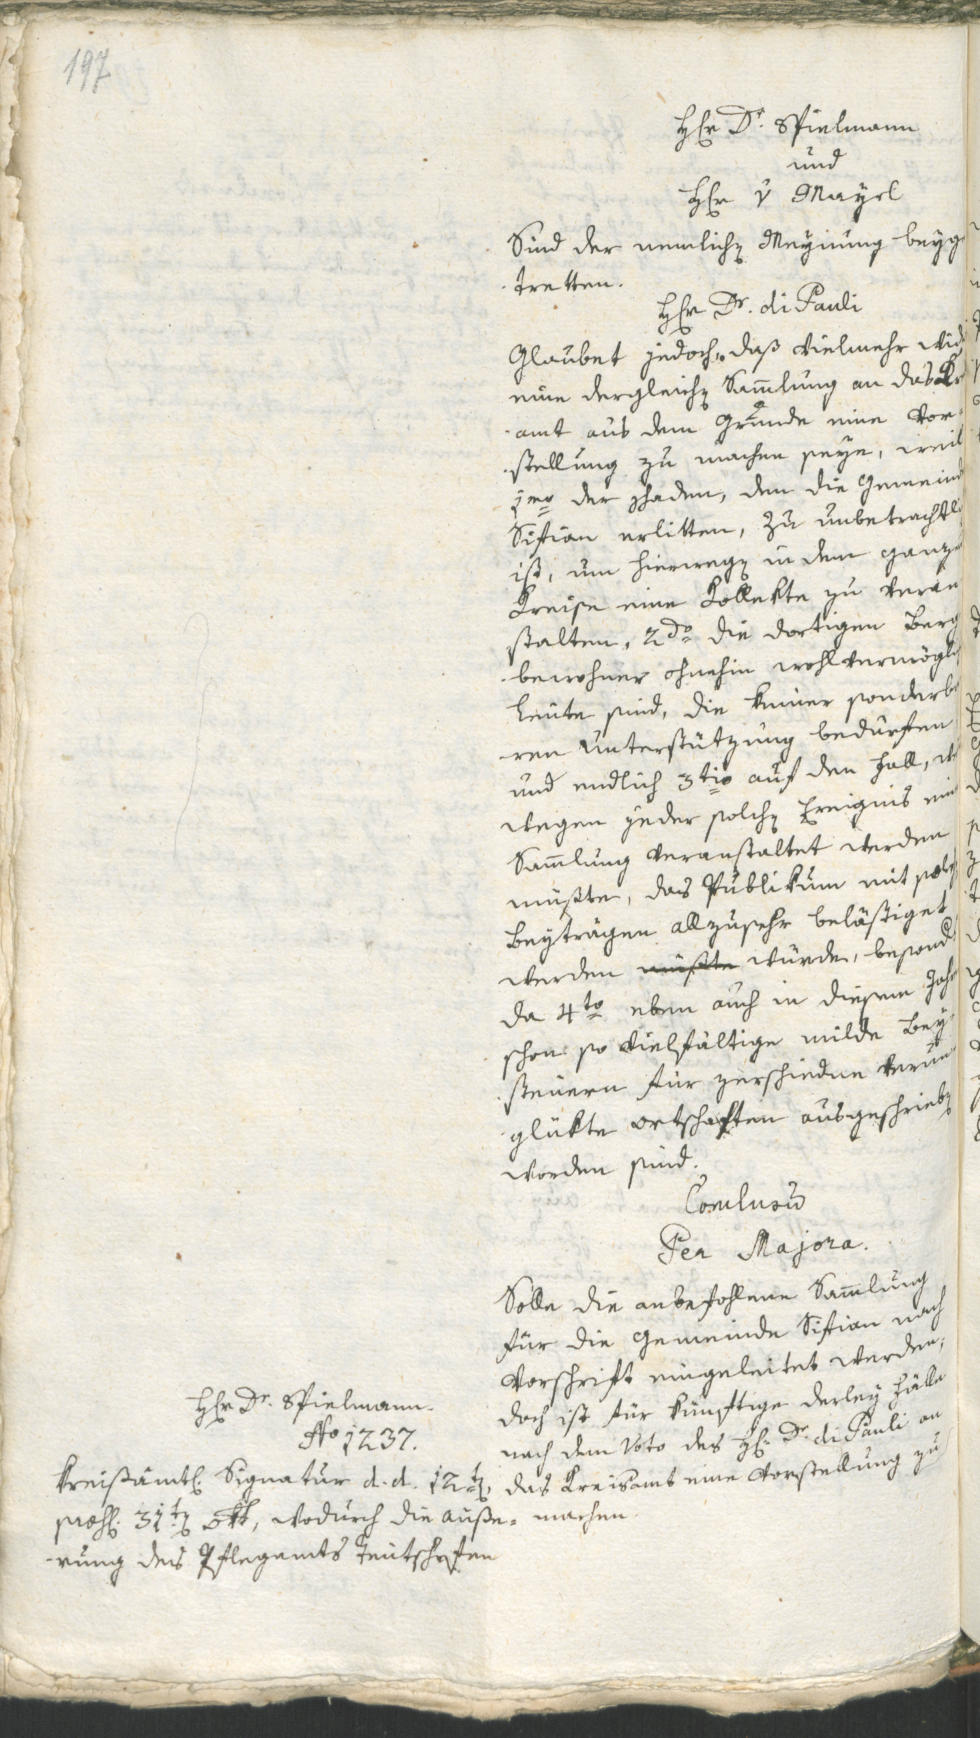 197
Hr Dr. Spielmann
und
Hr v Mayrl
Sind der nemlichen Meynung beyge
tretten.
Hr Dr. di Pauli
Glaubet jedoch, daß vielmehr wid
eine dergleichen Sammlung an das Kr
amt aus dem Grunde eine Vor-
stellung zu machen seye, weil
1mo der schaden, den die Gemeind
Sistian erlitten, zu unbetrachtli
ist, um hierwegen in dem ganz
Kreise eine Collekte zu veran
stalten, 2do die dortigen Berg
bewohner ohnehin wohlvermöglich
leute sind, die keiner sonderba
ren Unterstützung bedürften
und endlich 3tio auf den Fall, w
wegen jeder solchen Ereignis ein
Sammlung veranstaltet werden
müßte, das Publikum mit solch
Beyträgen allzusehr belästiget
werden müßte würde, besond
da 4to eben auch in diesem Jahr
schon so vielfältige milde Bey-
steuern für zerschiedne verun
glükte ortschaften ausgeschrieben
worden sind.
Conclusum
Per Majora.
Solle die anbefohlene Sammlung
für die Gemeinde Sistian nach
Vorschrift eingeleitet werden,
doch ist für künftige derley Fälle
nach dem Voto des H. Dr. di Pauli an
das Kreisamt eine Vorstellung zu
machen.
Hr Dr. Spielmann.
No 1237.
Kreißämtl. Signatur d. d. 12ten,
præs. 31ten Okt, wodurch die äuße-
rung des Pflegamts Teutschnofen